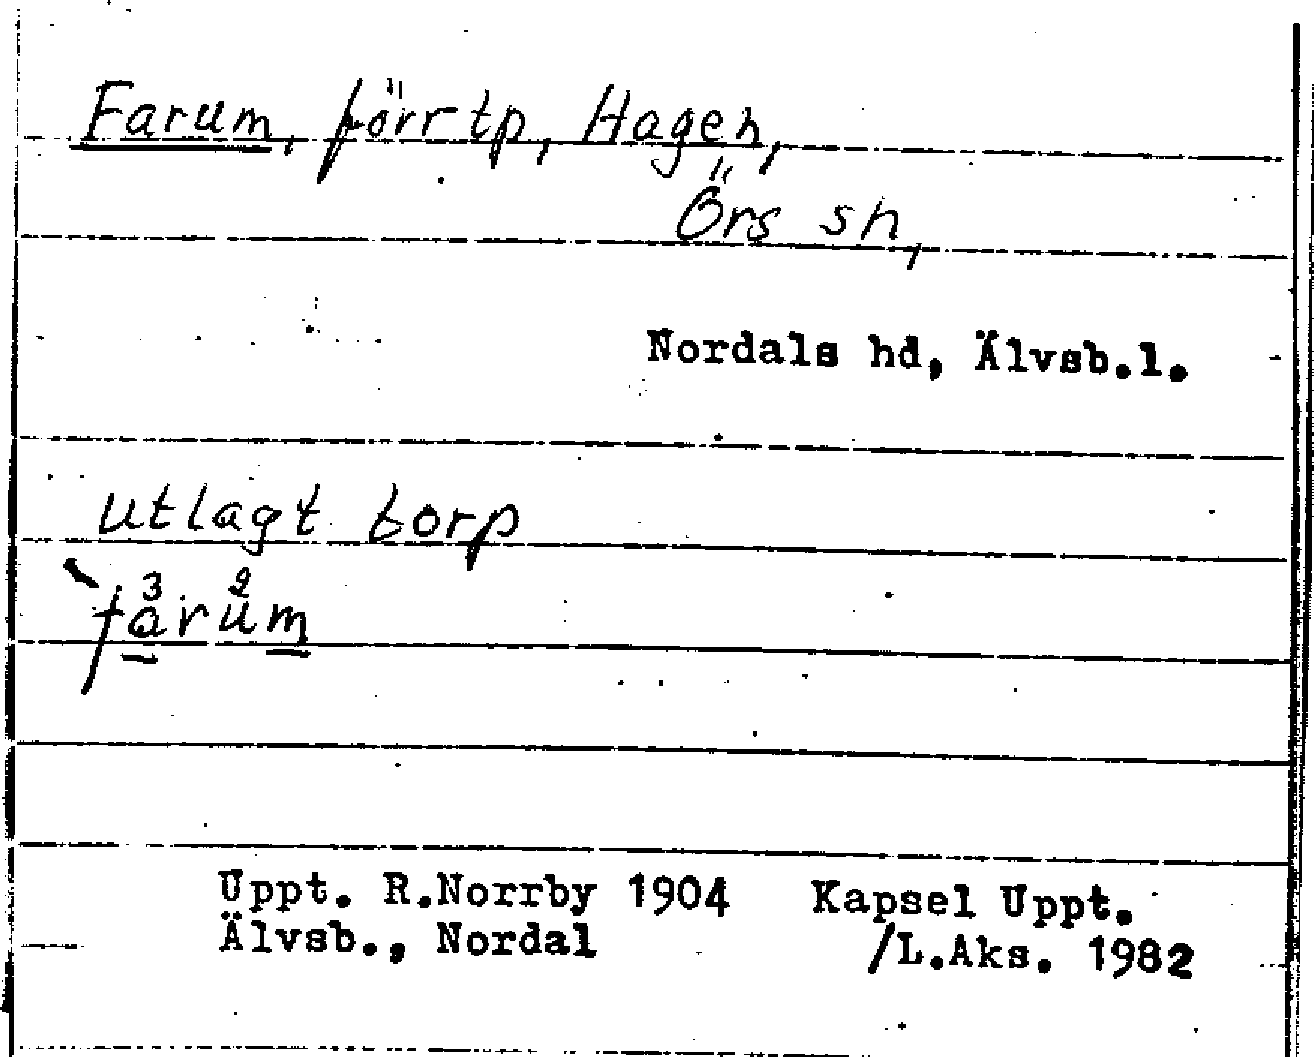 Farum, förr tp, Hagen,
Örs sn,
Nordals hd, Älvsb.l.
utlagt torp
`fa³ru²m
Uppt. R.Norrby 1904 Kapsel Uppt.
Älvsb., Nordal /L.Aks. 1982